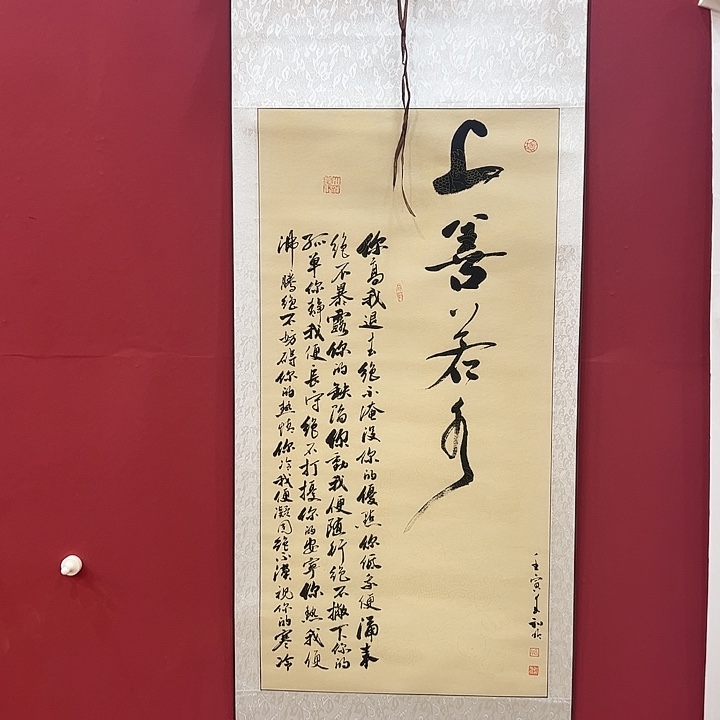 上善若水
你高我退去绝不淹没你的優點你低我便涌来
绝不暴露你的缺陷你動我便随行绝不撇下你的
孤单你静我便長守绝不打擾你的安寧你热我便
沸腾绝不妨碍你的热情你冷我便凝固绝不漠視你的寒冷
壬寅